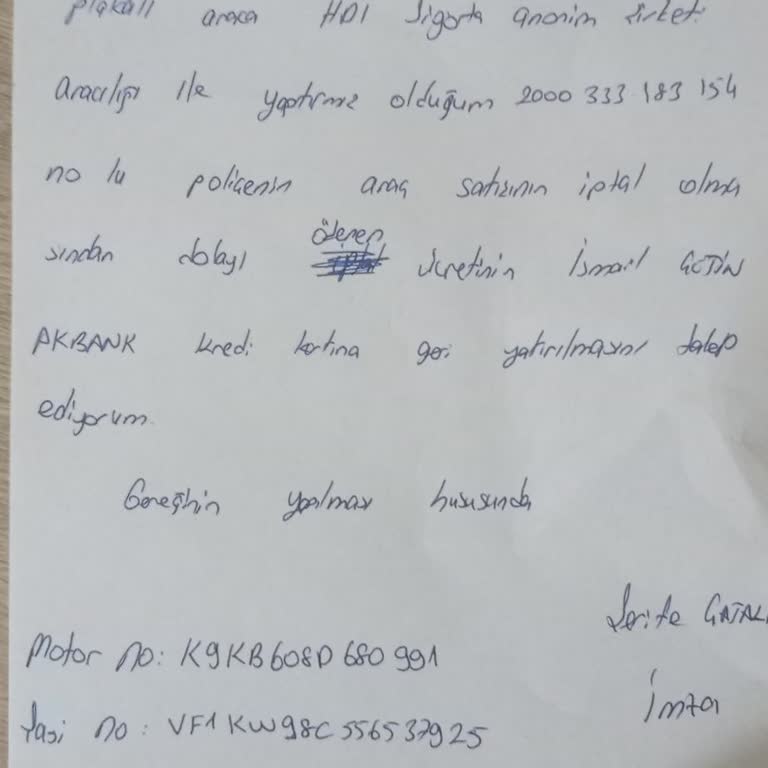 plakalı araca HDI Sigorta anonim şirketi
aracılığı ile yaptırmış olduğum 2000 333 183 154
no lu poliçenin araç satışının iptal olma
sından dolayı ödenen ücretinin İsmail ÇETİN
AKBANK kredi kartına geri yatırılmasını talep
ediyorum.
Gereğinin yapılması hususunda
Şerife ÇATAL
Motor no: K9KB608D680991
İmza
Şasi no: VF1KW98C556537925